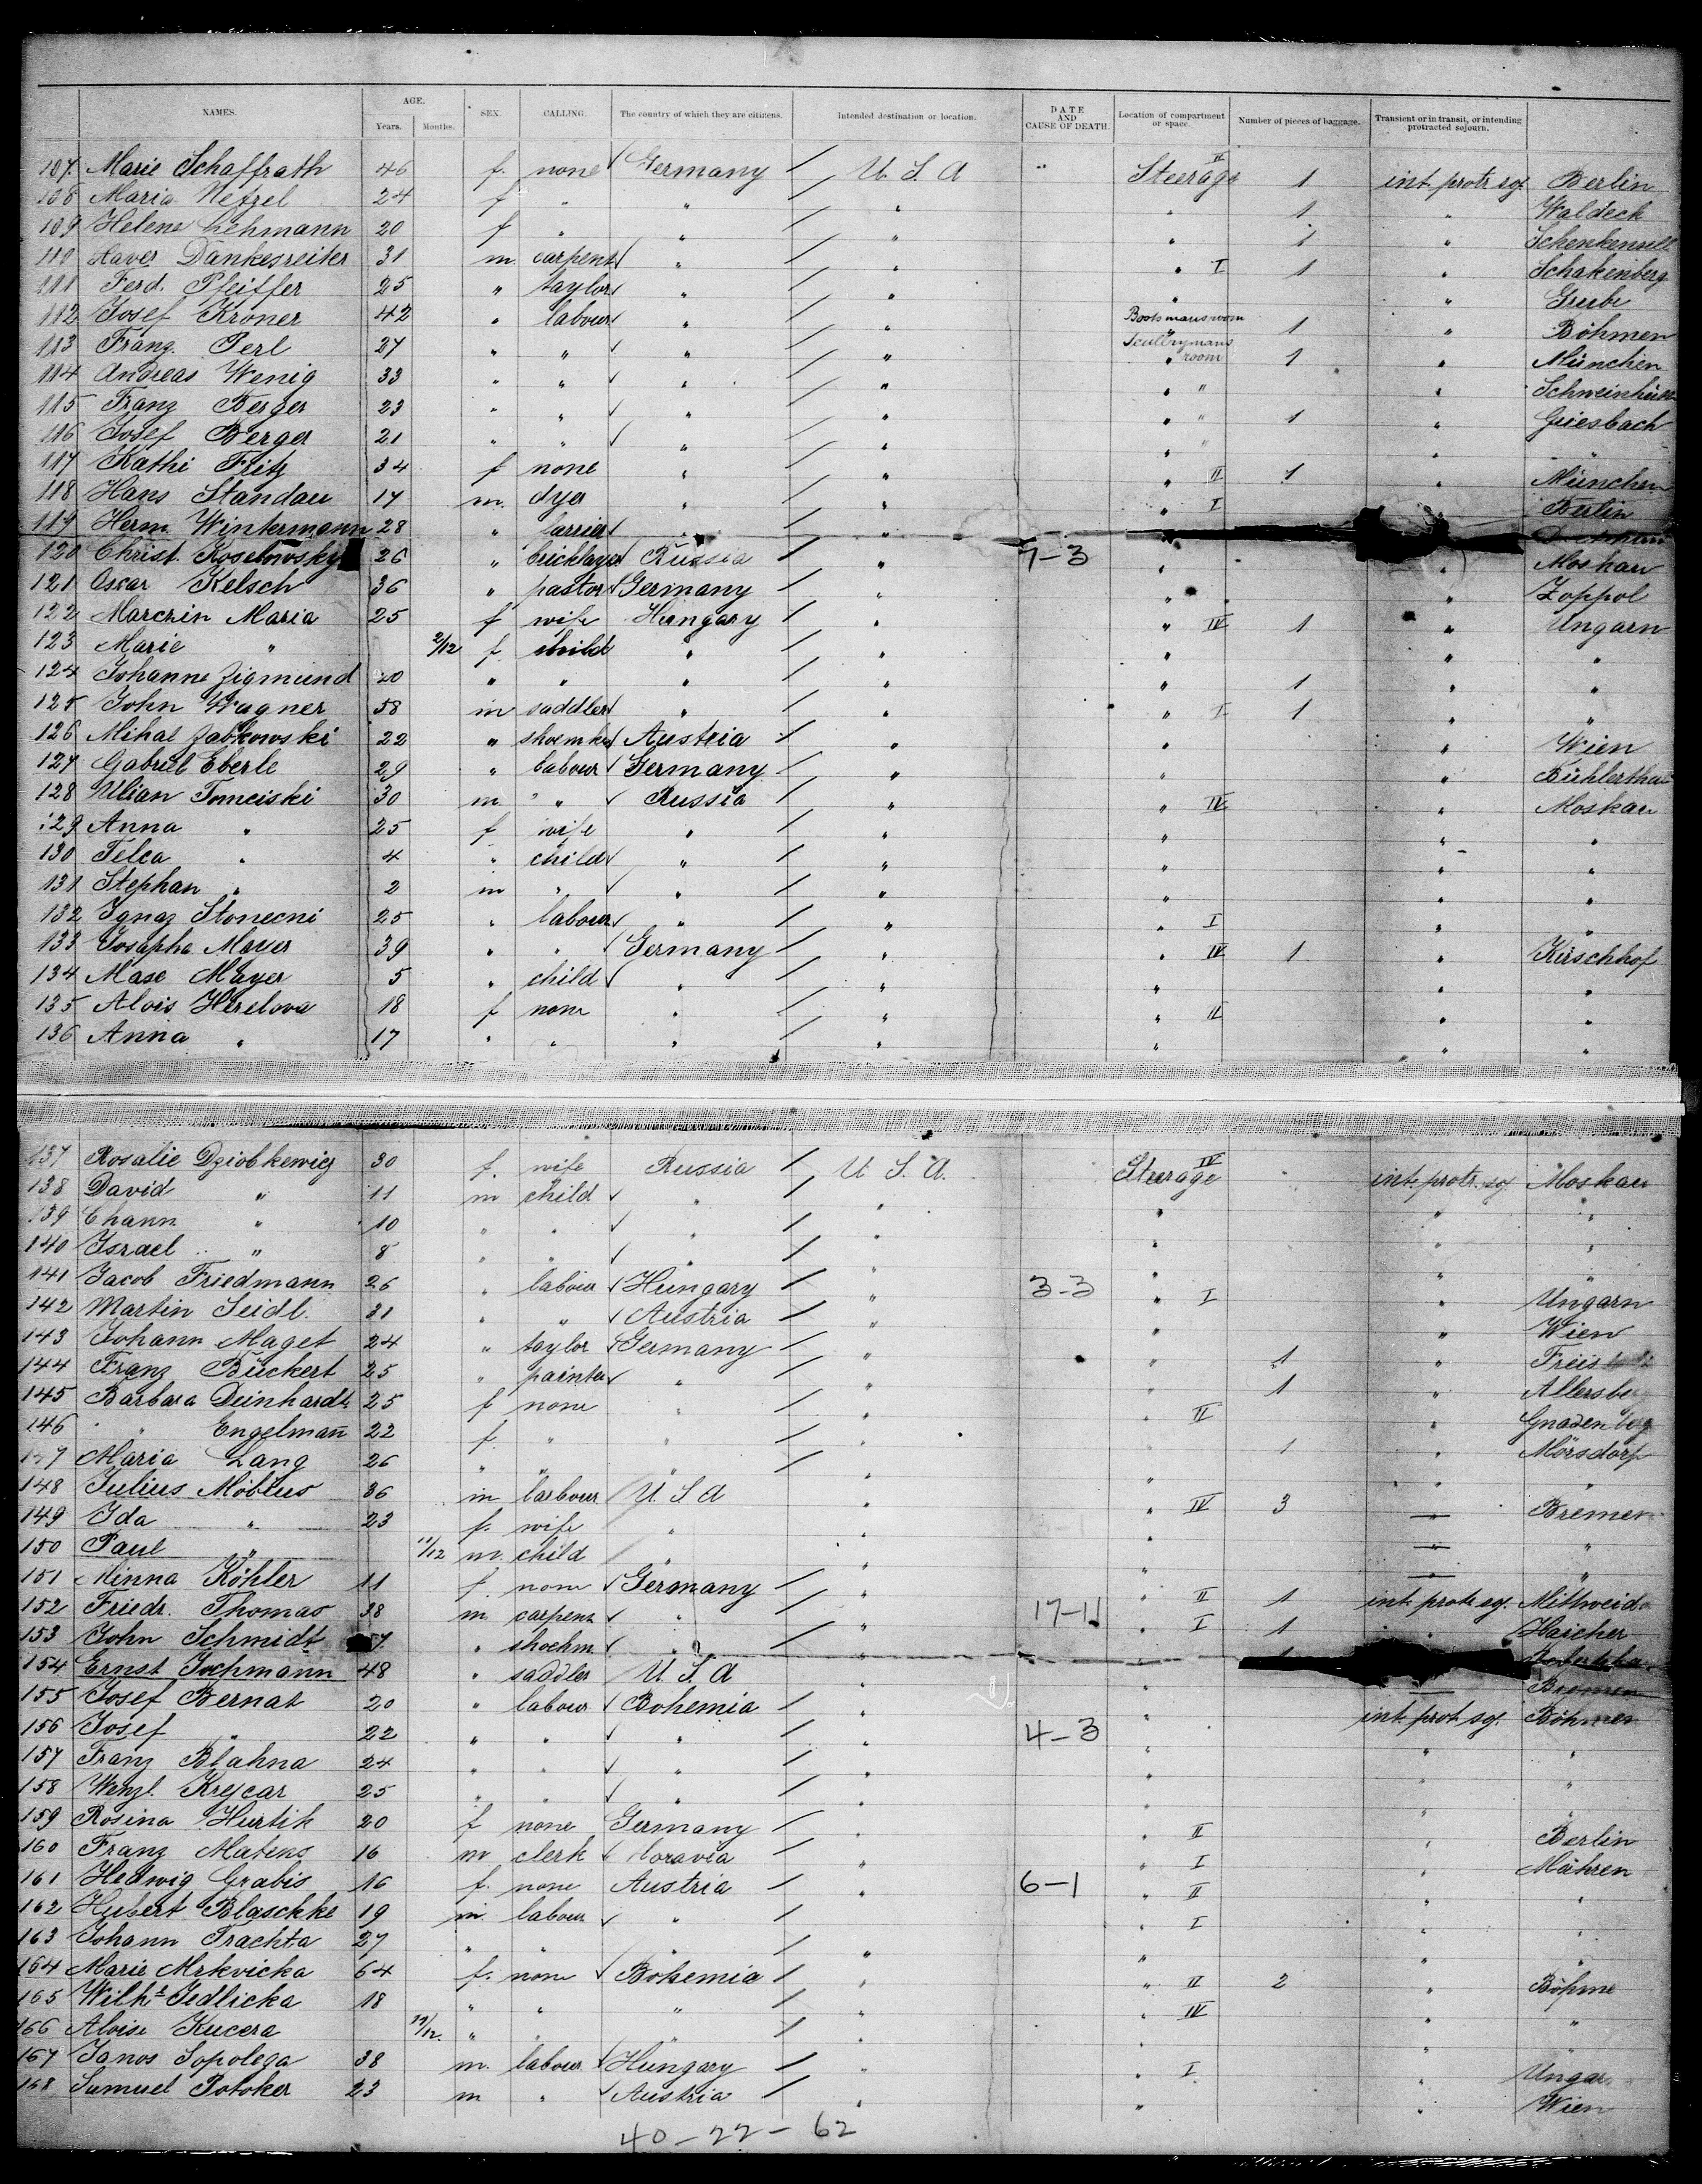 NAMES. AGE. Years. Months. SEX. CALLING. The country of which they are citizens. Intended destination or location. DATE AND CAUSE OF DEATH. Location of compartment or space. Number of pieces of baggage. Transient or in transit, or intending protracted sojourn.
107. Marie Schaffrath 46 f. none Germany / U. S. A Steerage II 1 int. protr. soj. Berlin
108 Maria Netzel 24 f " " / " " 1 " Waldeck
109 Helene Lehmann 20 f " " / " " 1 "
110 Xaver Dankesreiter 31 m. carpent " / " " I 1 " Schakenberg
111 Ferd. Pfeiffer 25 " taylor " / " " "
112 Josef Kroner 42 " labour " / " Bootsmansroom 1 " Böhmen
113 Franz. Perl 27 " " " / " Scullrymans room 1 " München
114 Andreas Wenig 33 " " " / " " " "
115 Franz Berger 23 " " " / " " " 1 " Griesbach
116 Josef Berger 21 " " " / " " " " "
117 Kathi Fritz 34 f none " / " " II 1 " München
118 Hans Standau 17 m. dyer " / " " I Berlin
119 Herm. Wintermann 28 " " / "
120 Christ. 26 " bricklayer Russia / " 7-3 " " Moskau
121 Oscar Kelsch 36 " pastor Germany / " " " Zoppol
122 Marczin Maria 25 f wife Hungary / " " IV 1 " Ungarn
123 Marie " 2/12 f child " / " " " "
124 Johanne Zigmund 20 " " " / " " 1 " "
125 John Wagner 58 m saddler " / " " I 1 " "
126 Mihal Zabkowski 22 " shoemk Austria / " " " Wien
127 Gabriel Eberle 29 " labour Germany / " " " Bühlerthal
128 Ulian Tomciski 30 m " Russia / " " IV " Moskau
129 Anna " 25 f wife " / " " " "
130 Felca " 4 " child " / " " " "
131 Stephan " 2 m " " / " " " "
132 Ignaz Stonecni 25 " labour " / " " I " "
133 Josapha Mayer 39 " " Germany / " " IV 1 " Kirschhof
134 Mase Mayer 5 " child " / " " " "
135 Alois Herelova 18 f none " / " " II " "
136 Anna " 17 " " " / " " " "
137 Rosalie Dziobkewicz 30 f. wife Russia / U S. A. Steerage IV int. protr. soj. Moskau
138 David " 11 m child " / " " " "
139 Chann " 10 " " " / " " " "
140 Israel " 8 " " " / " " " "
141 Jacob Friedmann 26 " labour Hungary / " 3-3 " I " Ungarn
142 Martin Seidl. 31 " " Austria / " " " Wien
143 Johann Maget 24 " taylor Germany / " " 1 "
144 Franz Bückert 25 " painter " / " " 1 " Allersbe
145 Barbara Deinhardt 25 f none " / " " II "
146 " Engelmañ 22 f. " " / " " 1 " Mörsdorf
147 Maria Lang 26 " " " / " " "
148 Julius Möbius 36 m labour U. S A " " IV 3 — Bremen
149 Ida " 23 f. wife " " " — "
150 Paul " 11/12 m. child " " " — "
151 Minna Köhler 11 f. none Germany / " " II 1 int. protr. soj. Mittweida
152 Friedr. Thomas 38 m carpent " / " 17-11 " I 1 "
153 John Schmidt " shoehm. " / " "
154 Ernst Jochmann 48 " saddler U. S. A " " — Bremen
155 Josef Bernat 20 " labour Bohemia / " " int. prot. soj. Böhmen
156 Josef " 22 " " " / " 4-3 " " "
157 Franz Blahna 24 " " " / " " " "
158 Wenzl. Krejcar 25 " " " / " " " "
159 Rosina Hurtik 20 f none Germany / " " II " Berlin
160 Franz Matens 16 m clerk Moravia / " " I " Mähren
161 Hedwig Grabis 16 f. none Austria / " 6-1 " II " "
162 Hubert Blaschke 19 m. labour " / " I " "
163 Johann Trachta 27 " " " / " " " "
164 Marie Mrkvicka 64 f. none Bohemia / " " II 2 " Böhme
165 Wilh. Jedlicka 18 " " " / " " IV " "
166 Aloise Kucera 11/12. " " / " " " "
167 Janos Sopolega 38 m. labour Hungary / " " I " Ungar
168 Samuel Potoker 23 m " Austria / " " " Wien
40-22-62